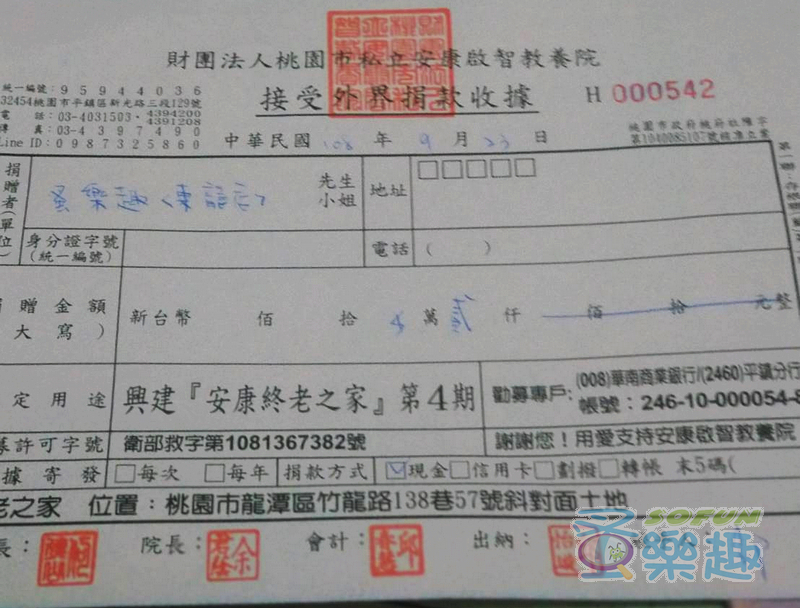 財團法人桃園市私立安康啟智教養院
統一編號：95944036
32454桃園市平鎮區新光路三段129號
電 話：03-4031503、4394200
4391208
傳 真：03-4397490
Line ID：0987325860
接受外界捐款收據 H 000542
中華民國 108 年 9 月 23 日
桃園市政府桃府社障字
第1040085107號核准立案
捐贈者(單位)
樂趣
先生
小姐
地址
身分證字號
(統一編號)
電話 ( )
捐贈金額
(大寫)
新台幣 佰 拾 萬 貳 仟 佰 拾 元整
定用途 興建『安康終老之家』第4期
勸募專戶：(008)華南商業銀行/(2460)平鎮分行
帳號：246-10-000054-8
募許可字號 衛部救字第1081367382號
謝謝您！用愛支持安康啟智教養院
據寄發 □每次 □每年 捐款方式 ☑現金□信用卡□劃撥□轉帳 末5碼(
老之家 位置：桃園市龍潭區竹龍路138巷57號斜對面土地
長： 院長： 會計： 出納：
SOFUN
樂趣